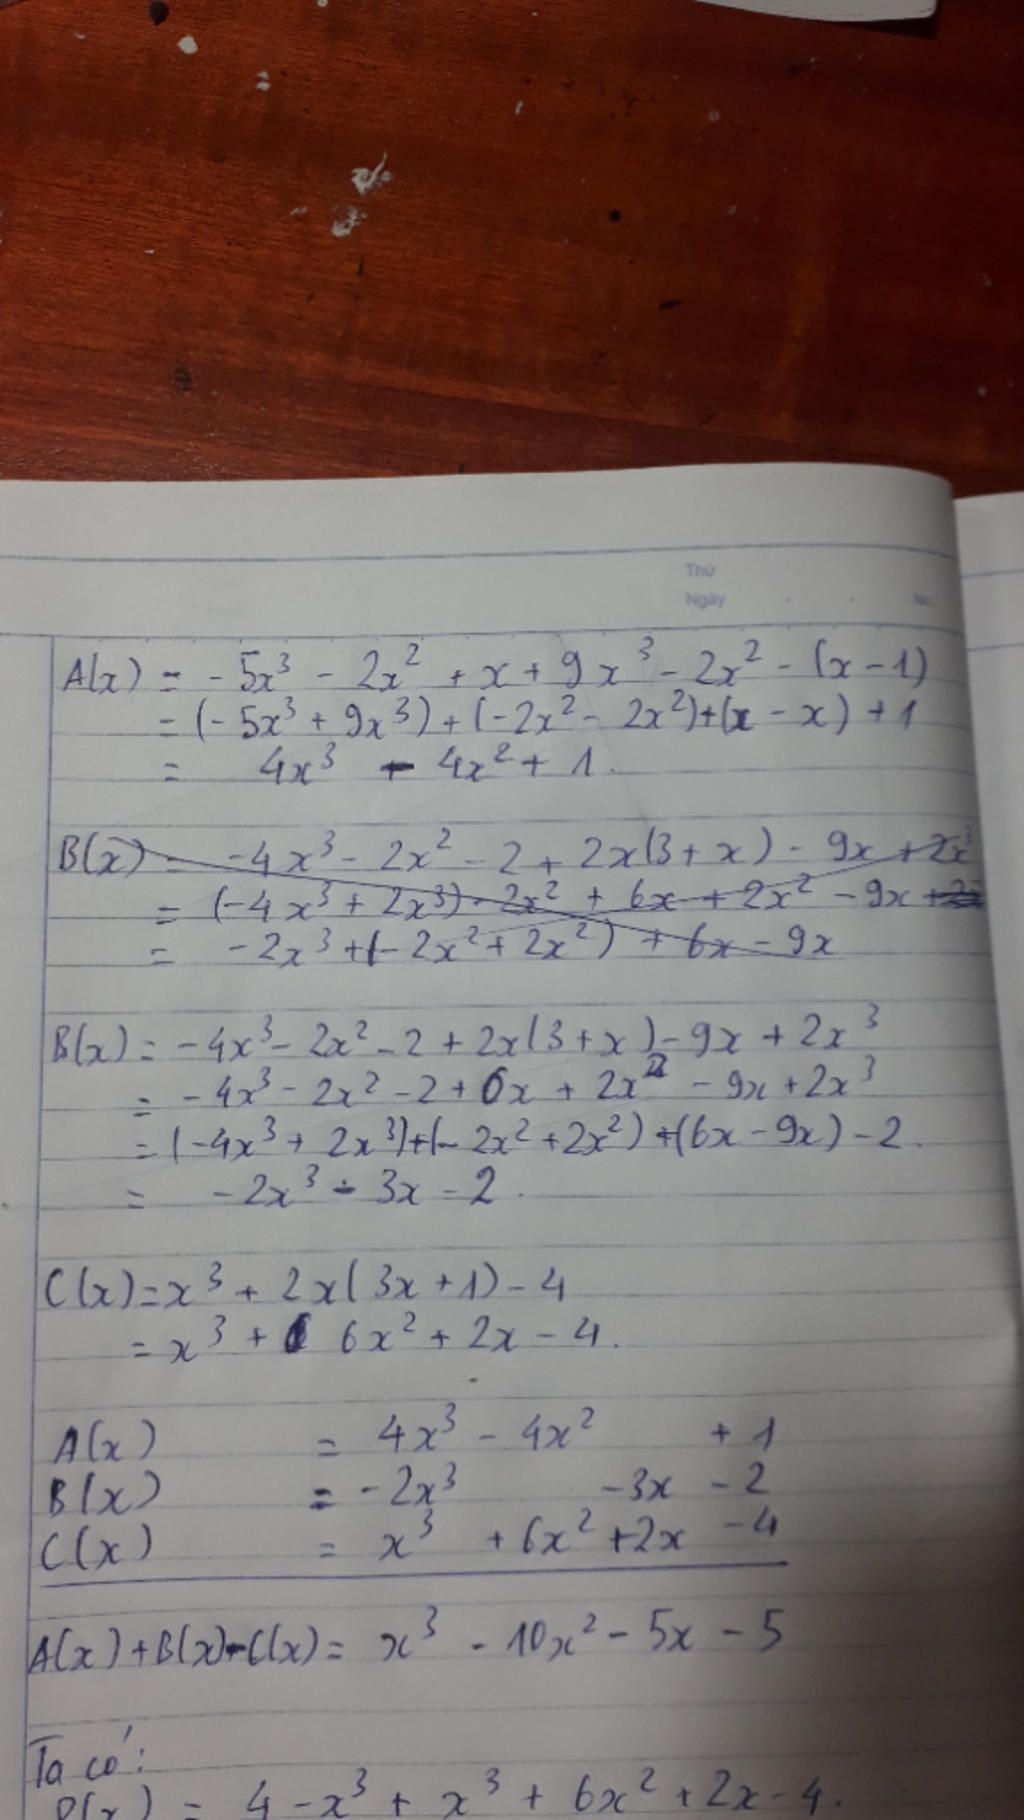 Thứ
Ngày No.
A(x) = -5x³ - 2x² + x + 9x³ - 2x² - (x - 1)
= (-5x³ + 9x³) + (-2x² - 2x²) + (x - x) + 1
= 4x³ - 4x² + 1.
B(x) = -4x³ - 2x² - 2 + 2x(3 + x) - 9x + 2x³
= (-4x³ + 2x³) - 2x² + 6x + 2x² - 9x +
= -2x³ + (-2x² + 2x²) + 6x - 9x
B(x) = -4x³ - 2x² - 2 + 2x(3 + x) - 9x + 2x³
= -4x³ - 2x² - 2 + 6x + 2x² - 9x + 2x³
= (-4x³ + 2x³) + (-2x² + 2x²) + (6x - 9x) - 2.
= -2x³ - 3x - 2.
C(x) = x³ + 2x(3x + 1) - 4
= x³ + 6x² + 2x - 4.
A(x) = 4x³ - 4x² + 1
B(x) = -2x³ -3x - 2
C(x) = x³ + 6x² + 2x - 4
A(x) + B(x) - C(x) = x³ - 10x² - 5x - 5
Ta có:
P(x) = 4 - x³ + x³ + 6x² + 2x - 4.